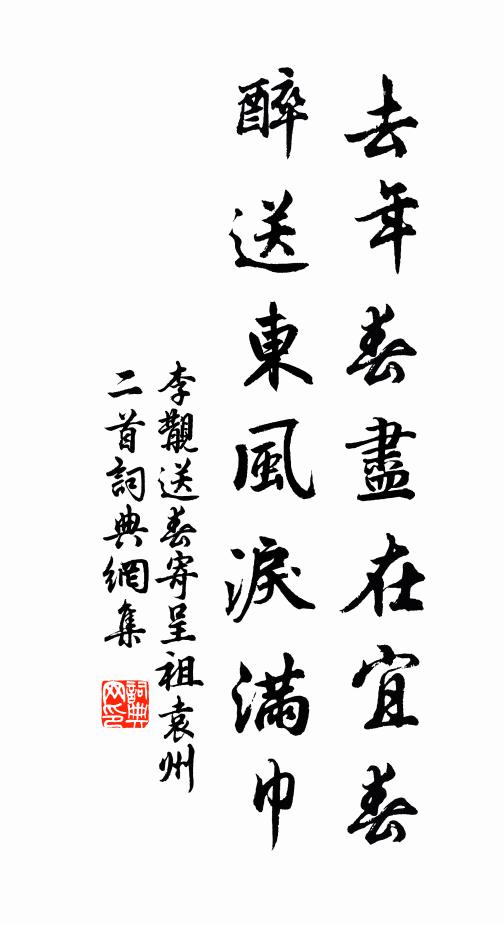 去年春盡在宜春
醉送東風淚滿巾
李覯送春寄呈祖袁州
二首詞典網集
詞典網印